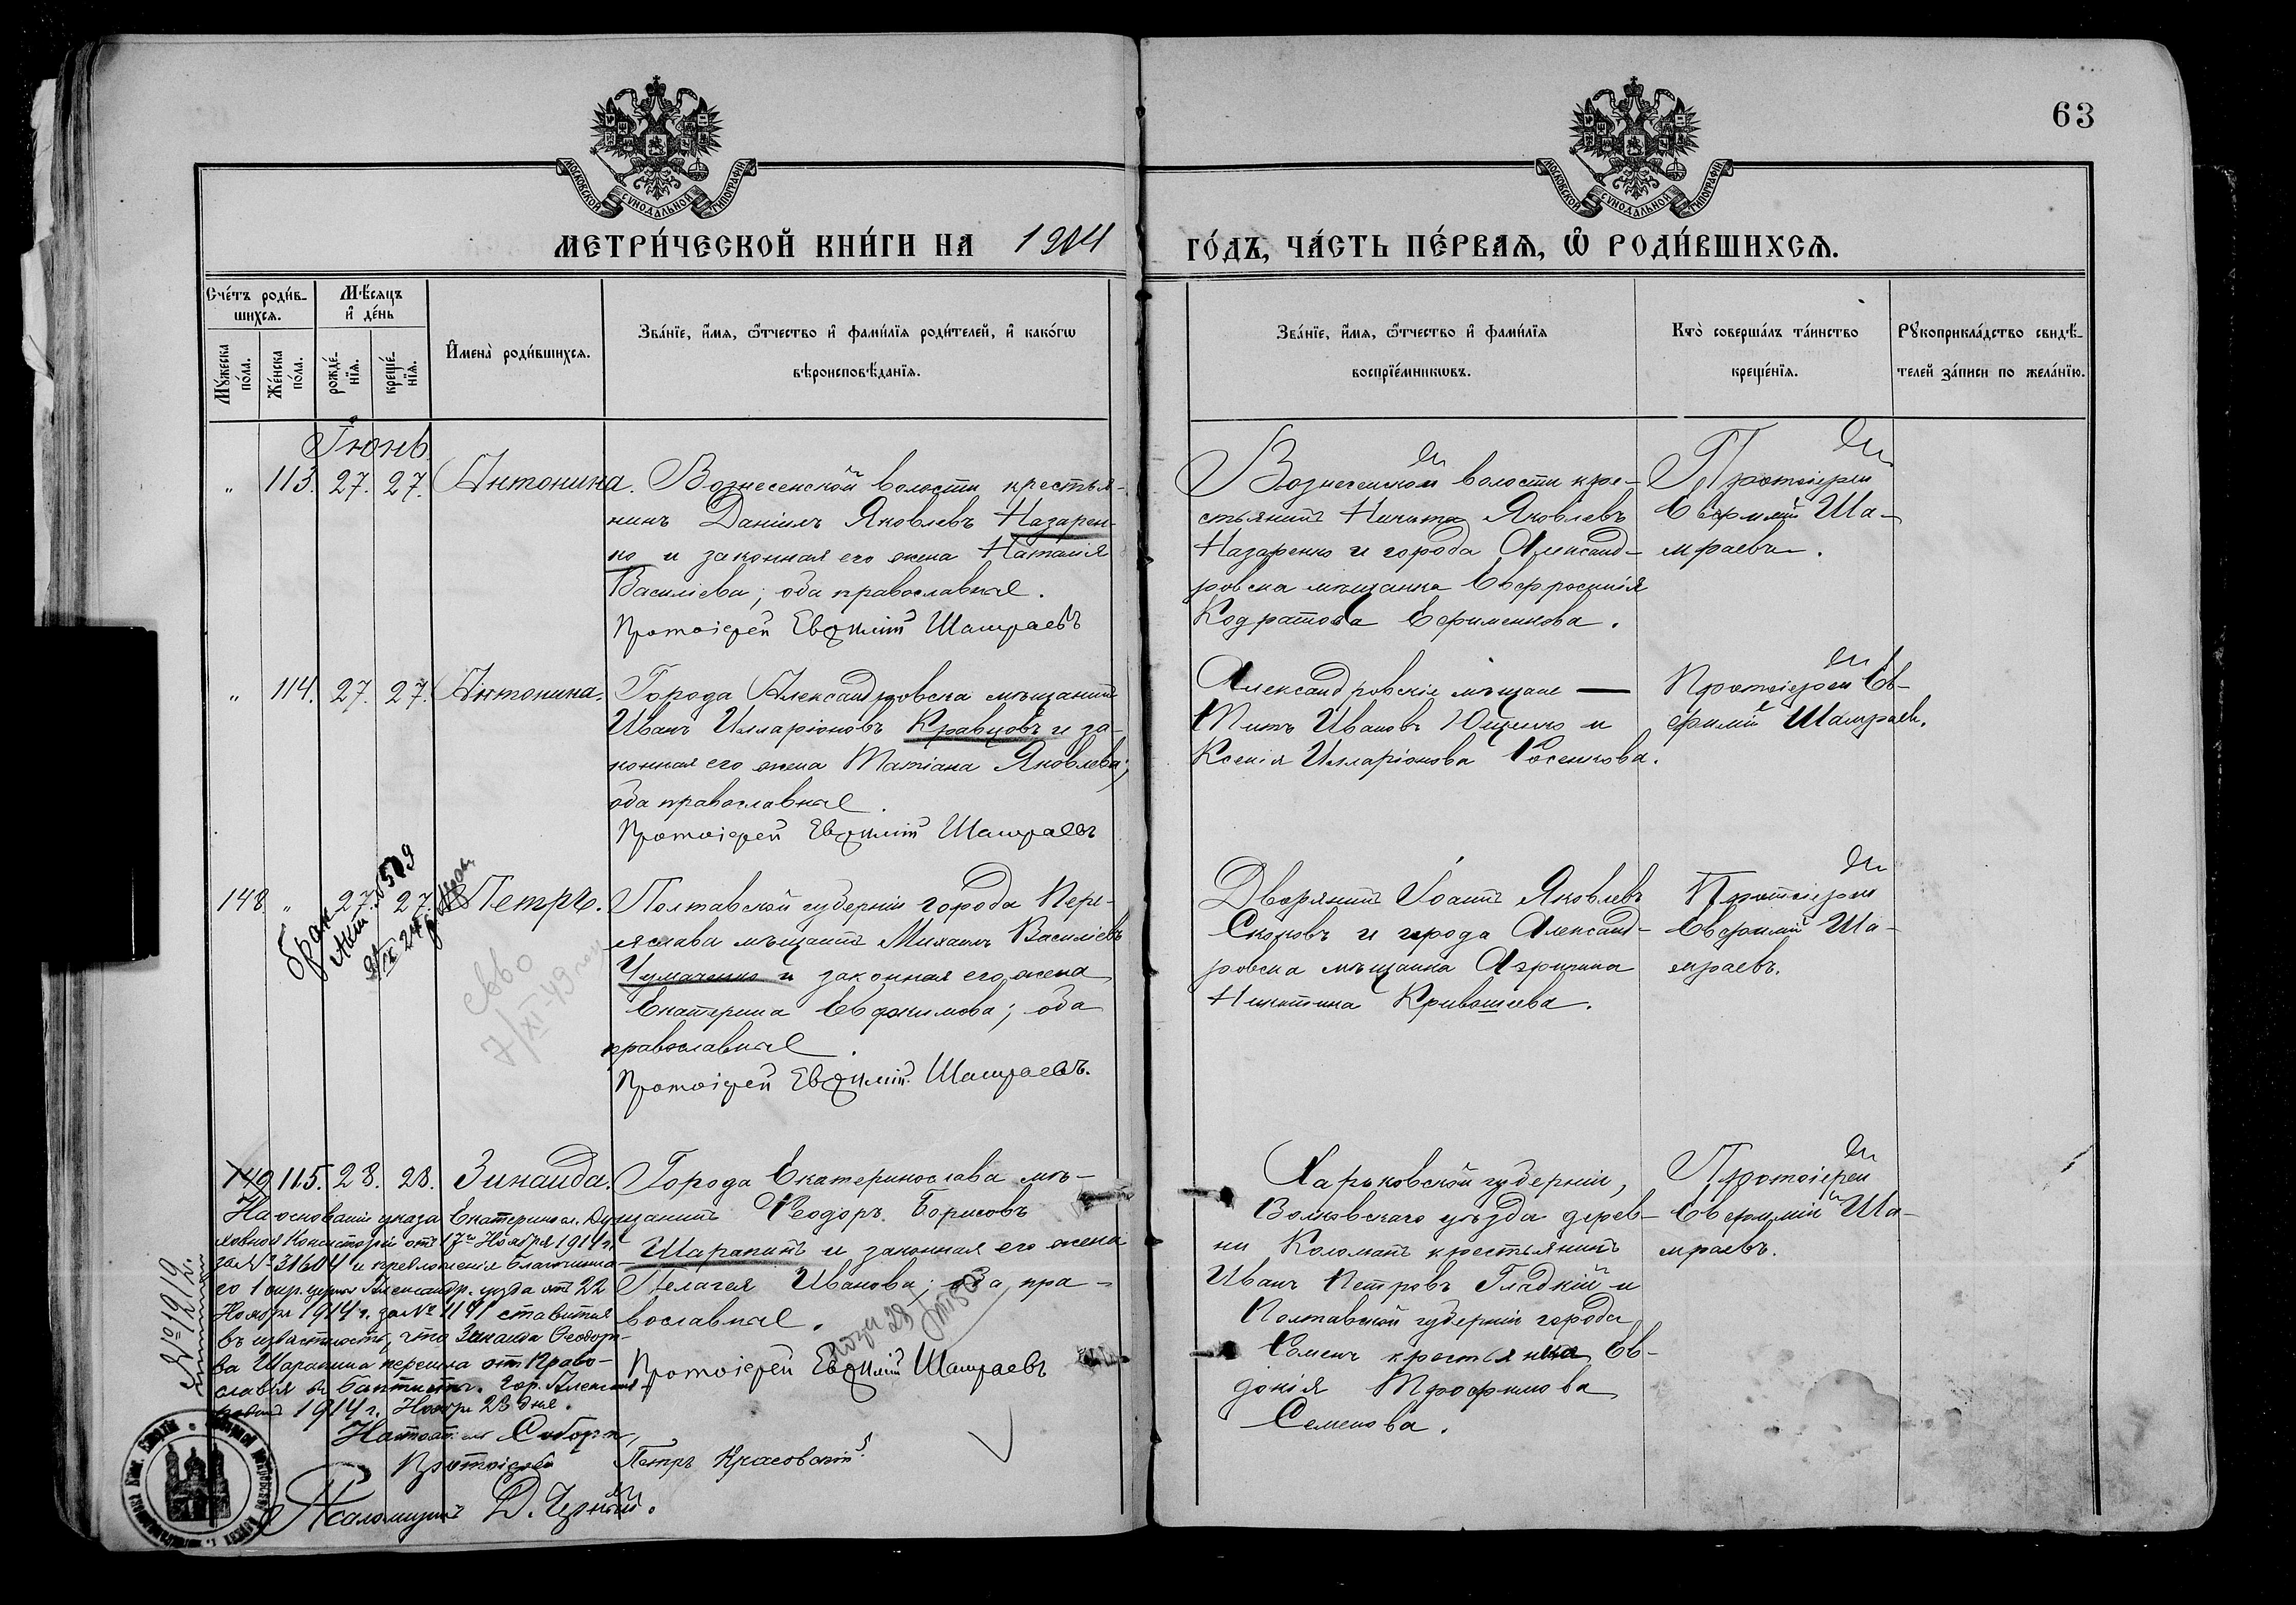 63
МОСКОВСКОЙ СѴНОДАЛЬНОЙ ТИПОГРАФІИ
МОСКОВСКОЙ СѴНОДАЛЬНОЙ ТИПОГРАФІИ
МЕТРИ́ЧЕСКОЙ КНИ́ГИ НА 1904
ГО́ДЪ, ЧА́СТЬ ПЕ́РВАѦ, Ѽ РОДИ́ВШИХСѦ.
Счéтъ роди́в-
шихсѧ.
Мѣ́сѧцъ
и҆ дéнь
Мꙋ́жеска
по́ла.
Жéнска
по́ла.
рождé-
нїѧ.
крещé-
нїѧ.
И҆мена̀ роди́вшихсѧ.
Зва́нїе, и҆́мѧ, ѻ҆́тчество и҆ фами́лїѧ роди́телей, и҆ како́гѡ
вѣроисповѣ́данїѧ.
Зва́нїе, и҆́мѧ, ѻ҆́тчество и҆ фами́лїѧ
воспрїе́мникѡвъ.
Кто̀ совершáлъ тáинство
крещéнїѧ.
Рꙋкоприклáдство свидѣ́-
телей зáписи по желáнїю.
Іюнь.
„ 113. 27. 27. Антонина.
Вознесенской волости крестья-
нинъ Даніилъ Яковлевъ Назарен-
ко и законная его жена Наталія
Василіева; оба православные.
Протоіерей Евѳимій Шамраевъ
Вознесенской волости кре-
стьянинъ Никита Яковлевъ
Назаренко и города Александ-
ровска мѣщанка Евфросинія
Кодратова Ефименкова.
Протоіерей
Евфимій Ша-
мраевъ.
„ 114. 27. 27. Антонина.
Города Александровска мѣщанинъ
Иванъ Илларіоновъ Кравцовъ и за-
конная его жена Татіана Яковлева;
оба православные.
Протоіерей Евѳимій Шамраевъ
Александровскіе мѣщане —
Титъ Ивановъ Ющенко и
Ксенія Илларіонова
Протоіерей Ев-
фимій Шамраев.
148 „ 27. 27. Петръ.
Бракъ
Акт № 509
Полтавской губерніи города Пере-
яслава мѣщанинъ Михаилъ Василіевъ
Чумаченко и законная его жена
Екатерина Евфимова; оба
православные.
Протоіерей Евѳимій Шамраевъ.
Дворянинъ Іоаннъ Яковлевъ
Скоковъ и города Александ-
ровска мѣщанка Агрипина
Никитина Кривошеева.
Протоіерей
Евфимій Ша-
мраевъ.
свво
7/XI-49 году
149 115. 28. 28. Зинаида.
Города Екатеринослава мѣ-
щанинъ Ѳеодоръ Борисовъ
Шарапинъ и законная его жена
Пелагея Иванова; оба пра-
вославные.
Протоіерей Евѳимій Шамраевъ
Харьковской губерніи,
Волковскаго уѣзда дерев-
ни Коломакъ крестьянинъ
Иванъ Петровъ Гладкій и
Полтавской губерніи города
Роменъ крестьянка Ев-
докія Трофимова
Семенова.
Протоіерей
Евфимій Ша-
мраевъ.
На основаніи указа Екатериносл. Ду-
ховной Консисторіи отъ 17го Ноября 1914 г.
за № 31604 и предложенія благочинна-
го 1 окр. церкв. Александр. уѣзда отъ 22
Ноября 1914 г. за № 1141 ставится
въ извѣстность, что Зинаида Ѳеодоро-
ва Шарапина перешла отъ Право-
славія въ баптисты. Гор. Алексан-
1914 г. Ноября 28 дня.
Настоятель Собора,
Протоіерей Петръ Красовскій.
Псаломщикъ Д. Черный.
№ 1919